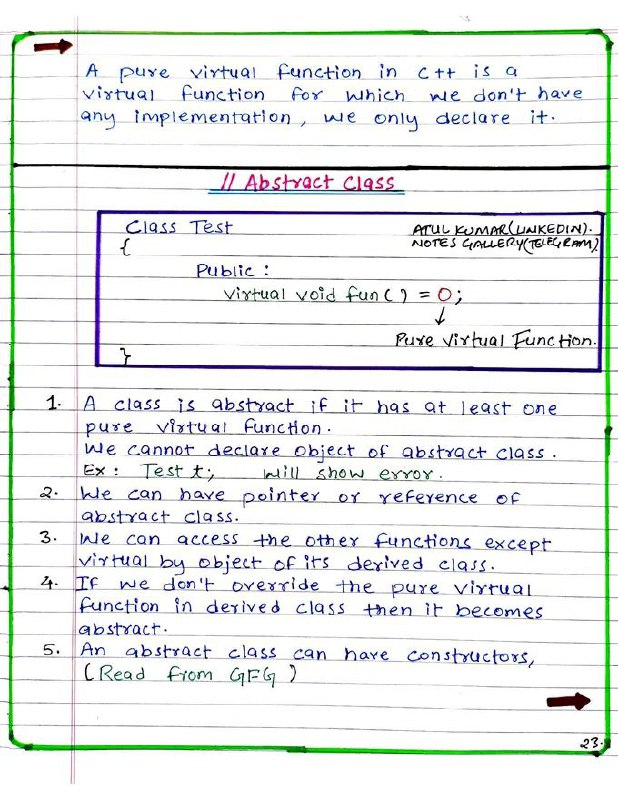 A pure virtual function in C++ is a
virtual function for which we don't have
any implementation, we only declare it.
// Abstract Class
Class Test
ATUL KUMAR(LINKEDIN).
{
NOTES GALLERY(TELEGRAM)
Public :
virtual void fun() = 0;
Pure Virtual Function.
}
1. A class is abstract if it has at least one
pure virtual function.
We cannot declare object of abstract class.
Ex : Test t; will show error.
2. We can have pointer or reference of
abstract class.
3. We can access the other functions except
virtual by object of its derived class.
4. If we don't override the pure virtual
function in derived class then it becomes
abstract.
5. An abstract class can have constructors,
(Read from GFG)
23.